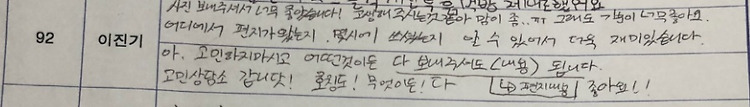 92
이진기
사진 보내주셔서 너무 좋았습니다! 고생해주시는것 같아 맘이 좀.. 그래도 기분이 너무좋아요.
어디에서 편지가왔는지. 몇시에 쓰셨는지 알 수 있어서 더욱 재미있습니다.
아. 고민하지마시고 어떤것이든 다 보내주셔도(내용) 됩니다.
고민상담소 갑니닷! 호칭도! 무엇이든! 다 ↳편지내용 좋아요!!